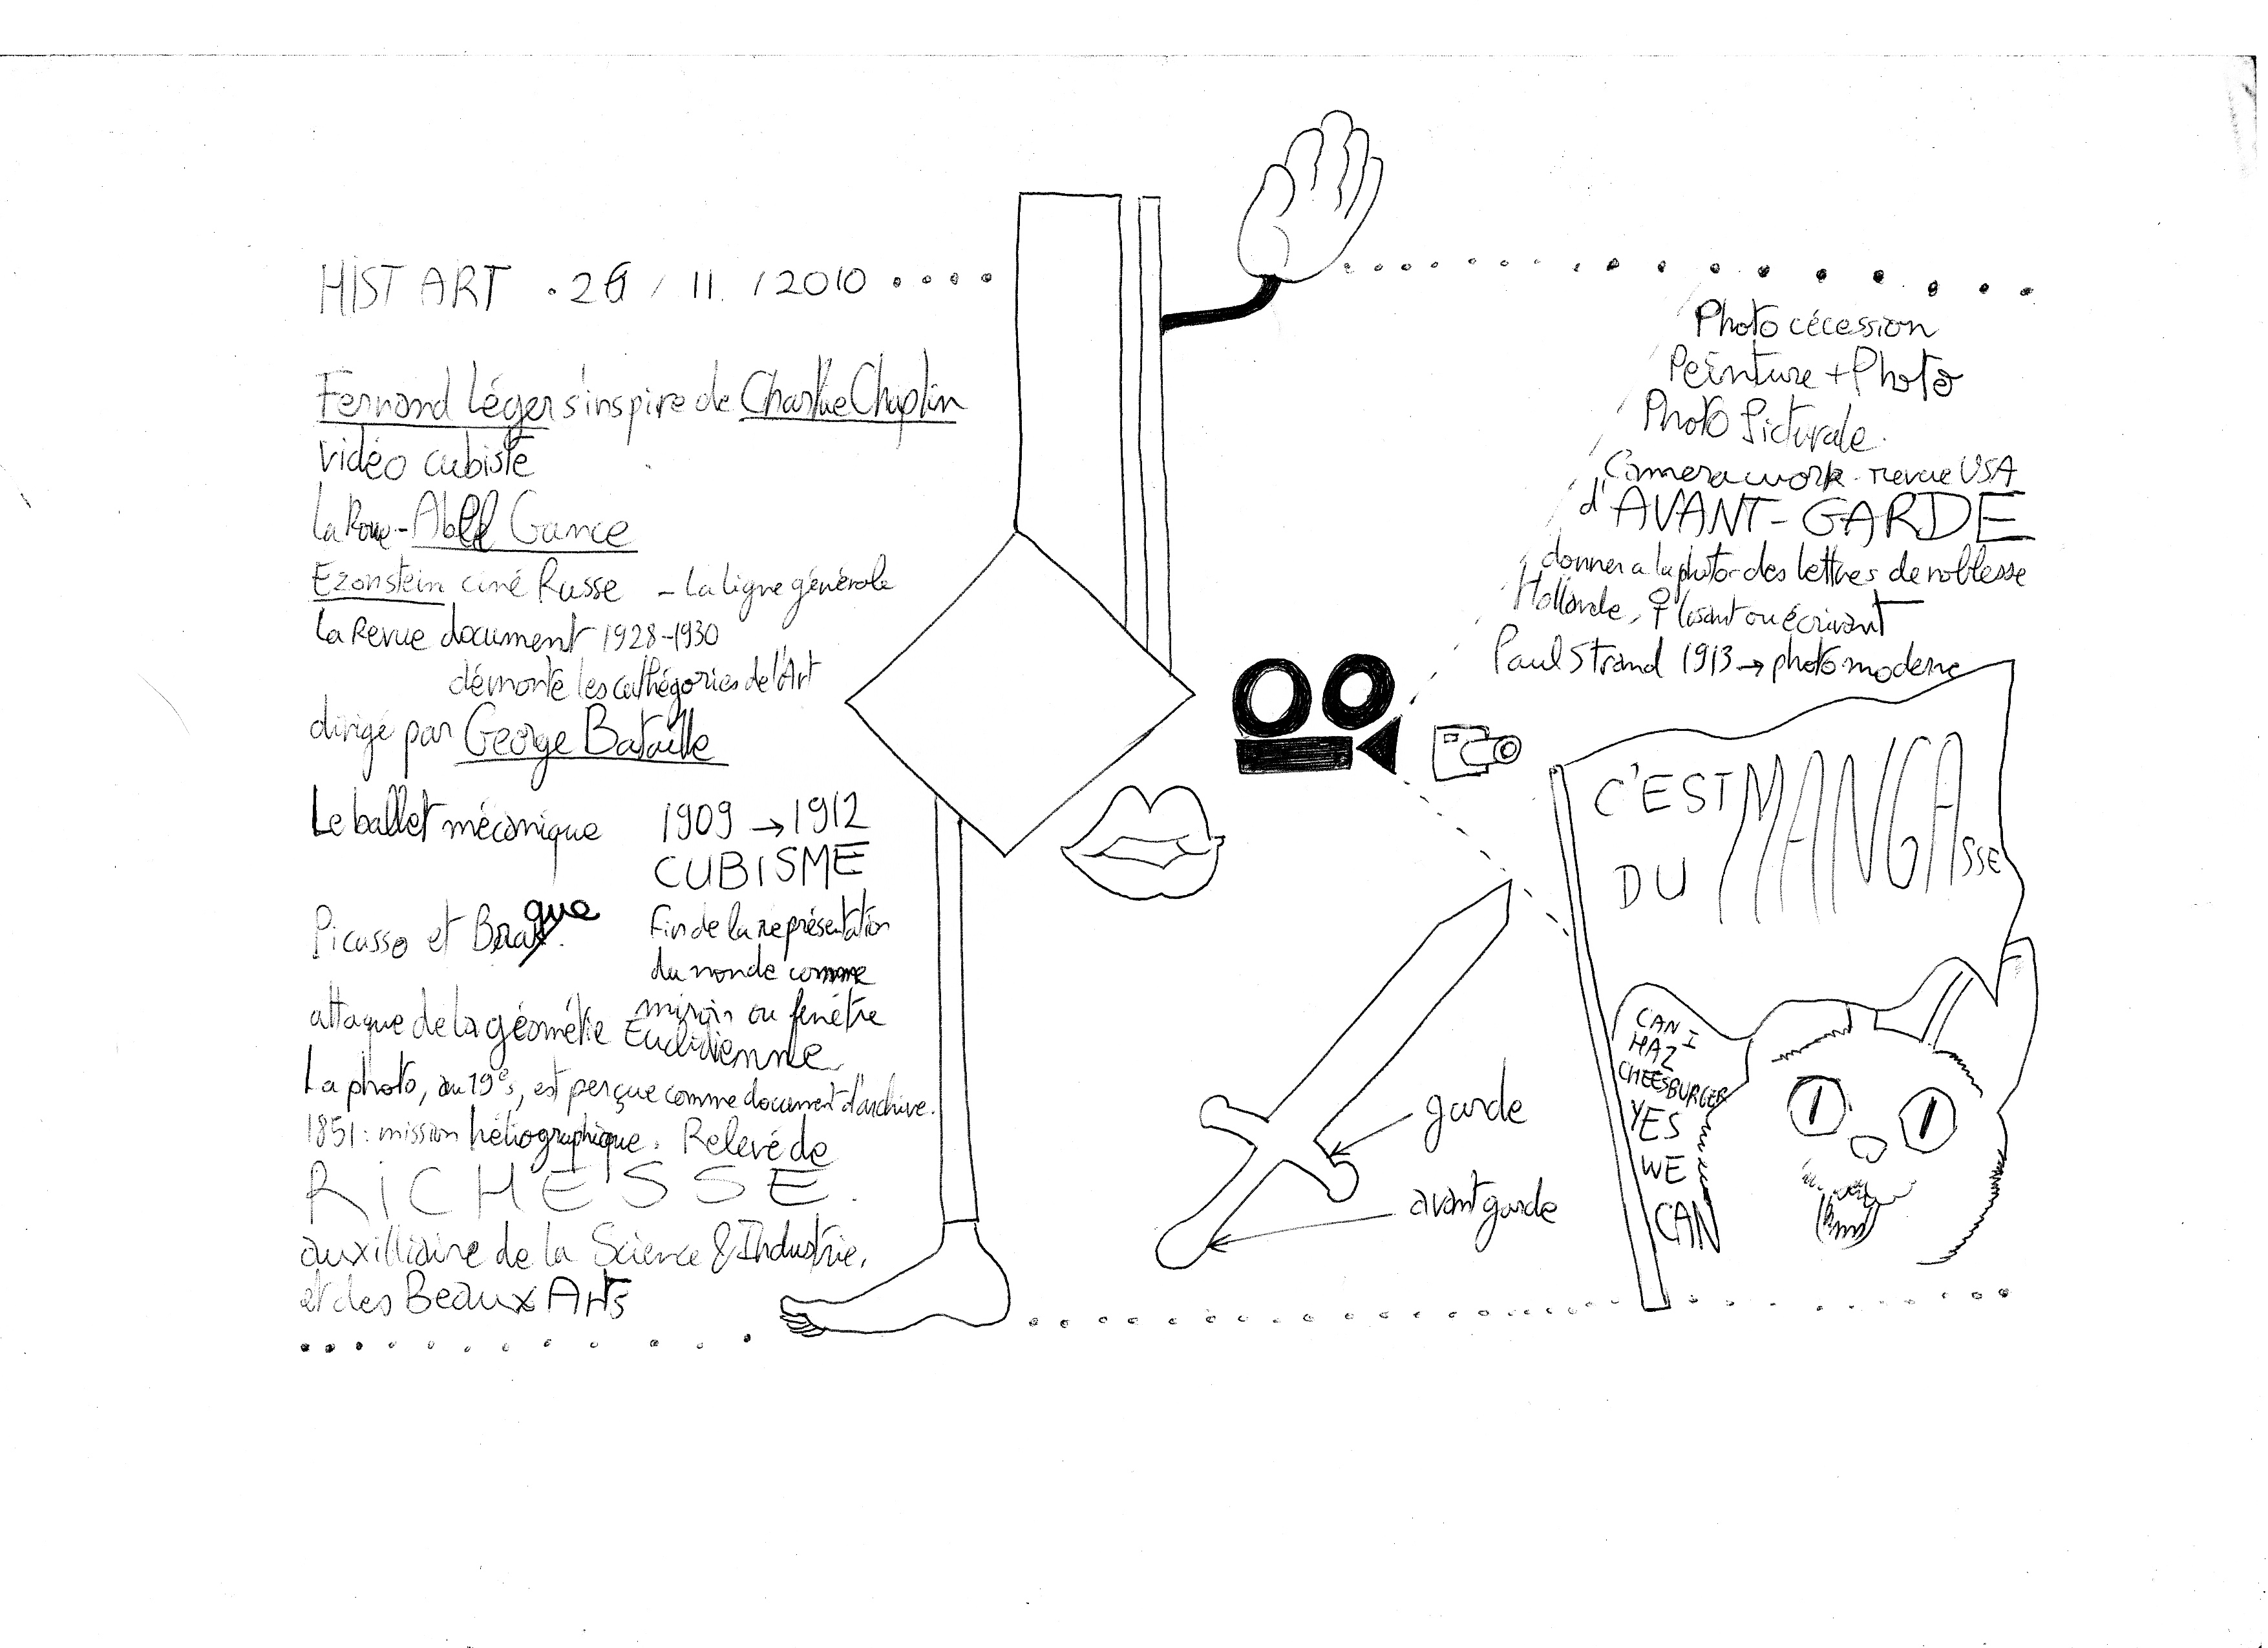 HIST ART . 26 / 11. / 2010 ....
Fernand Léger s'inspire de Charlie Chaplin
vidéo cubiste
la Roue - Abel Gance
Ezonstein ciné Russe - La ligne générale
la Revue document 1928-1930
démonte les cathégories de l'Art
dirigé par George Bataille
Le ballet mécanique
1909 → 1912
CUBISME
Picasso et Braque.
Fin de la représentation
du monde comme
miroir ou fenêtre
attaque de la géométie Euclidienne
La photo, au 19e s, est perçue comme document d'archive.
1851 : mission héliographique. Relevé de
RICHESSE.
auxilliaire de la Science & Industrie,
et des Beaux Arts
Photo cécession
Peinture + Photo
Photo Picturale.
Camera work - revue USA
d'AVANT-GARDE
donner a la photo des lettres de noblesse
Hollande, ♀ lisant ou écrivant
Paul Strand 1913 → photo moderne
C'EST
DU MANGAsse
garde
avant garde
CAN I
HAZ
CHEESBURGER
YES
WE
CAN